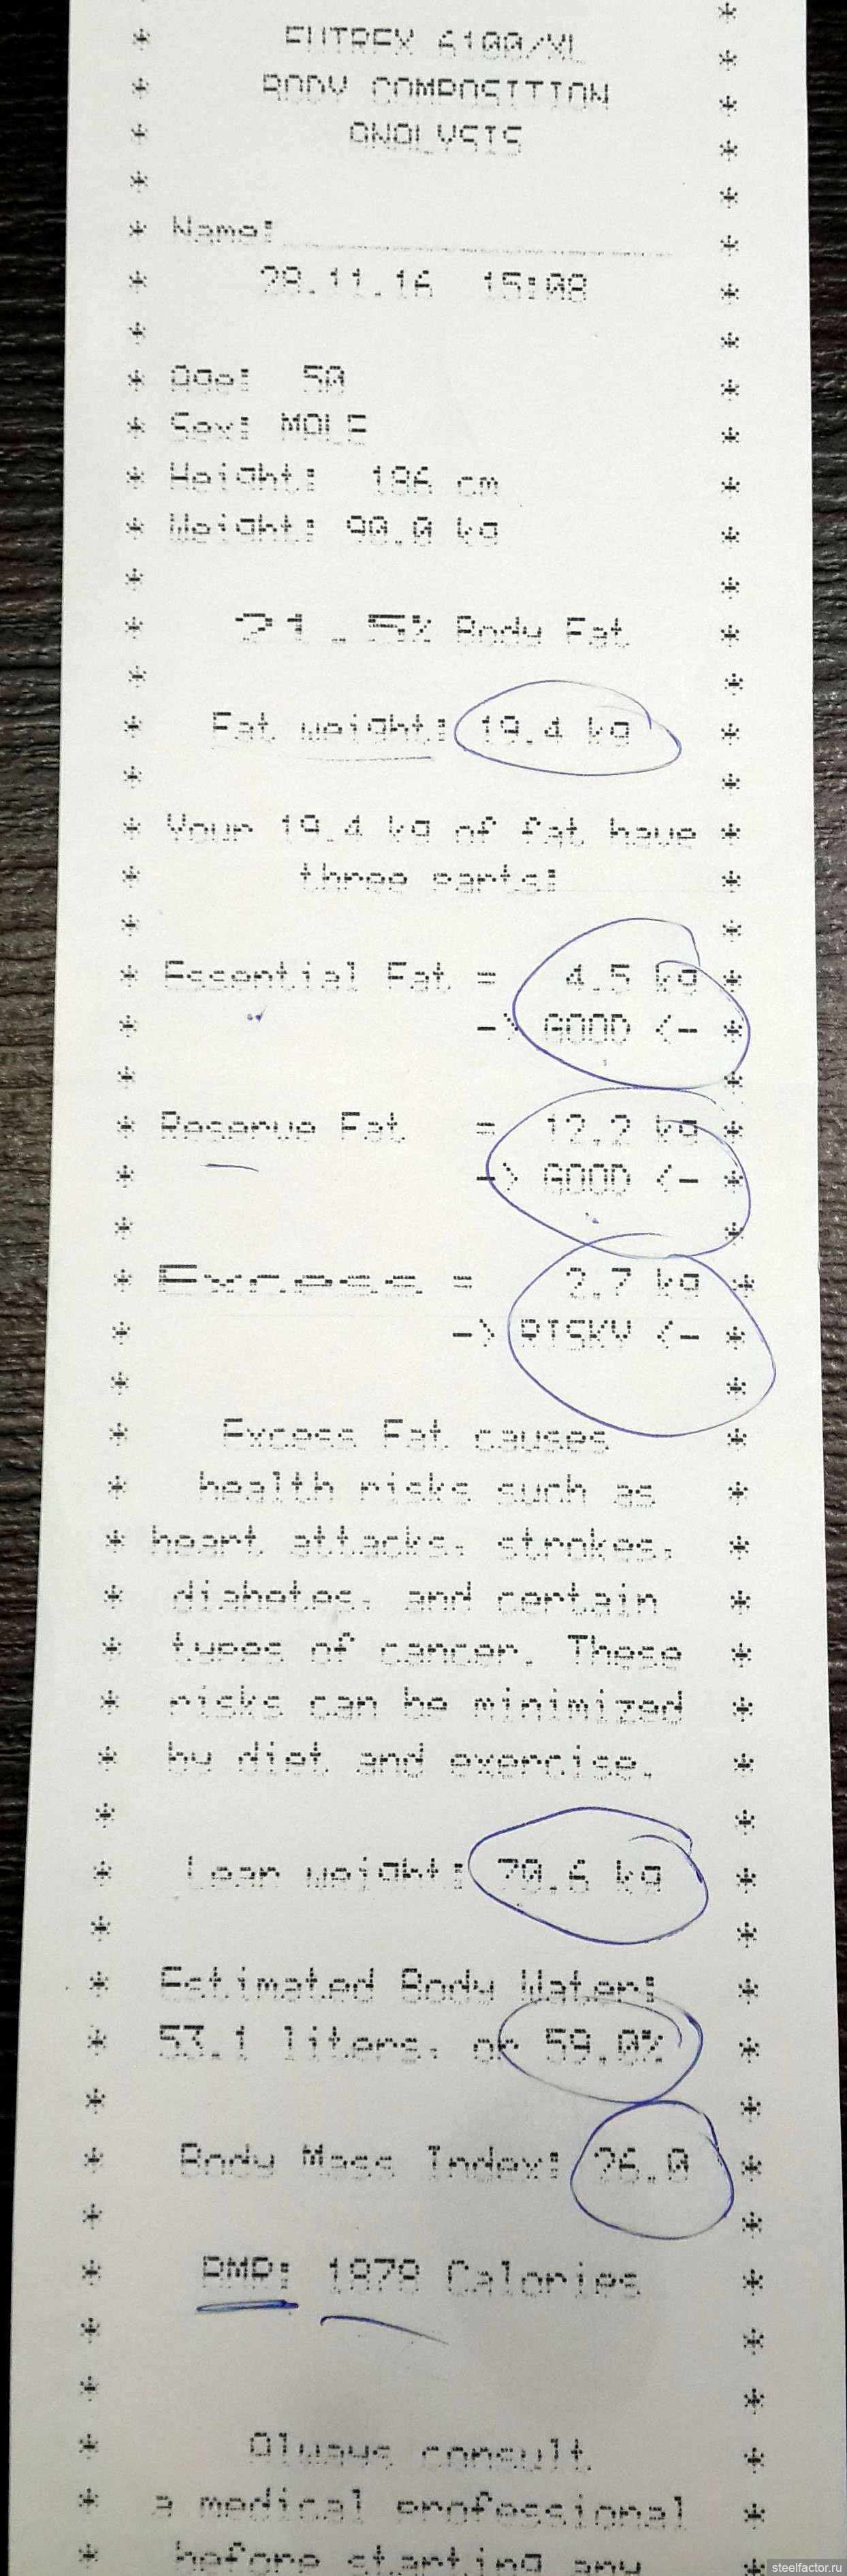 FUTREX 6100/XL
BODY COMPOSITION
ANALYSIS
Name:
28.11.16 15:08
Age: 50
Sex: MALE
Height: 186 cm
Weight: 90.0 kg
21.5% Body Fat
Fat weight: 19.4 kg
Your 19.4 kg of fat have
three parts:
Essential Fat = 4.5 kg
-> GOOD <-
Reserve Fat = 12.2 kg
-> GOOD <-
Excess = 2.7 kg
-> RISKY <-
Excess Fat causes
health risks such as
heart attacks, strokes,
diabetes, and certain
types of cancer. These
risks can be minimized
by diet and exercise.
Lean weight: 70.6 kg
Estimated Body Water:
53.1 liters, or 59.0%
Body Mass Index: 26.0
BMR: 1878 Calories
Always consult
a medical professional
before starting any
steelfactor.ru